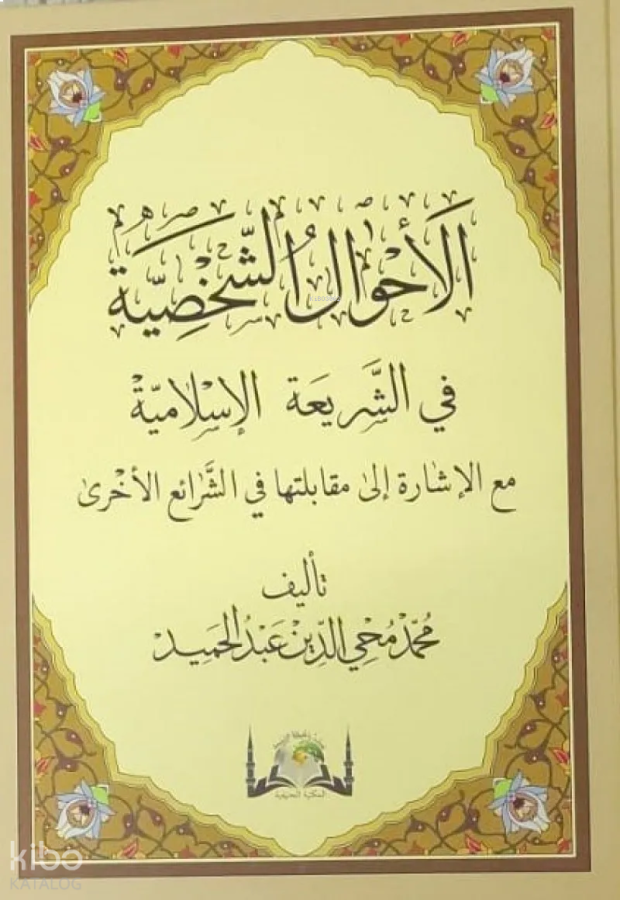 الأَحْوَالُ الشَّخْصِيَّة
في الشَّرِيعَة الإِسْلَامِيَّة
مع الإشارة إلى مقابلتها في الشَّرائع الأخرى
تأليف
مُحَمَّد مُحْيِي الدِّين عَبْدُ الحَمِيد
المكتبة الحنيفية
kibo
KATALOG